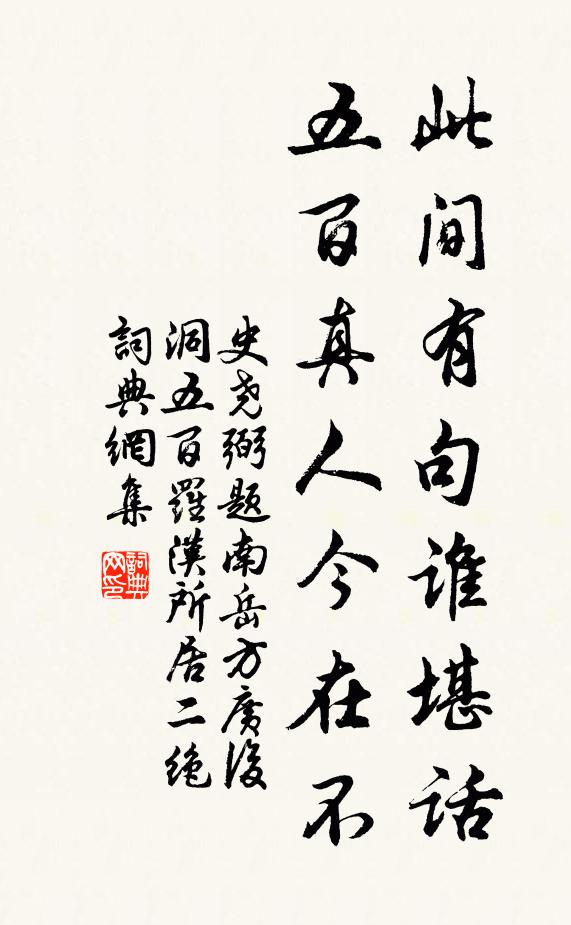 此间有句谁堪话
五百真人今在不
史尧弼题南岳方广后
洞五百羅漢所居二绝
詞典網集
詞典
网印